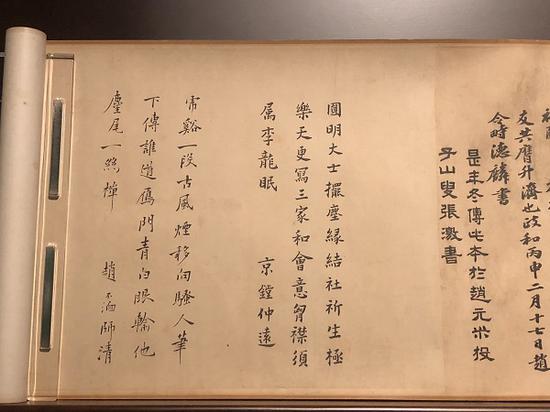 友共曆升濟也政和丙申二月十七日趙
令時德麟書
是年冬傳此本於趙元米投
子山叟張澂書
圓明大士擺塵緣結社祈生極
樂天更寫三家和會意胷襟須
属李龍眠
京鏜仲遠
虎谿一段古風煙移向騷人筆
下傳誰道鴈門青白眼輸他
麈尾一絲禪
趙不 師清